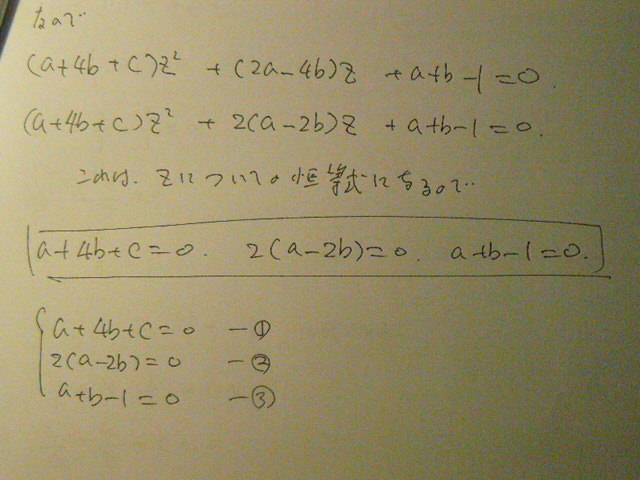 なので
(a+4b+c)z² + (2a-4b)z + a+b-1=0
(a+4b+c)z² + 2(a-2b)z + a+b-1=0.
これは、zについての恒等式になるので
a+4b+c=0. 2(a-2b)=0. a+b-1=0.
a+4b+c=0 -①
2(a-2b)=0 -②
a+b-1=0 -③